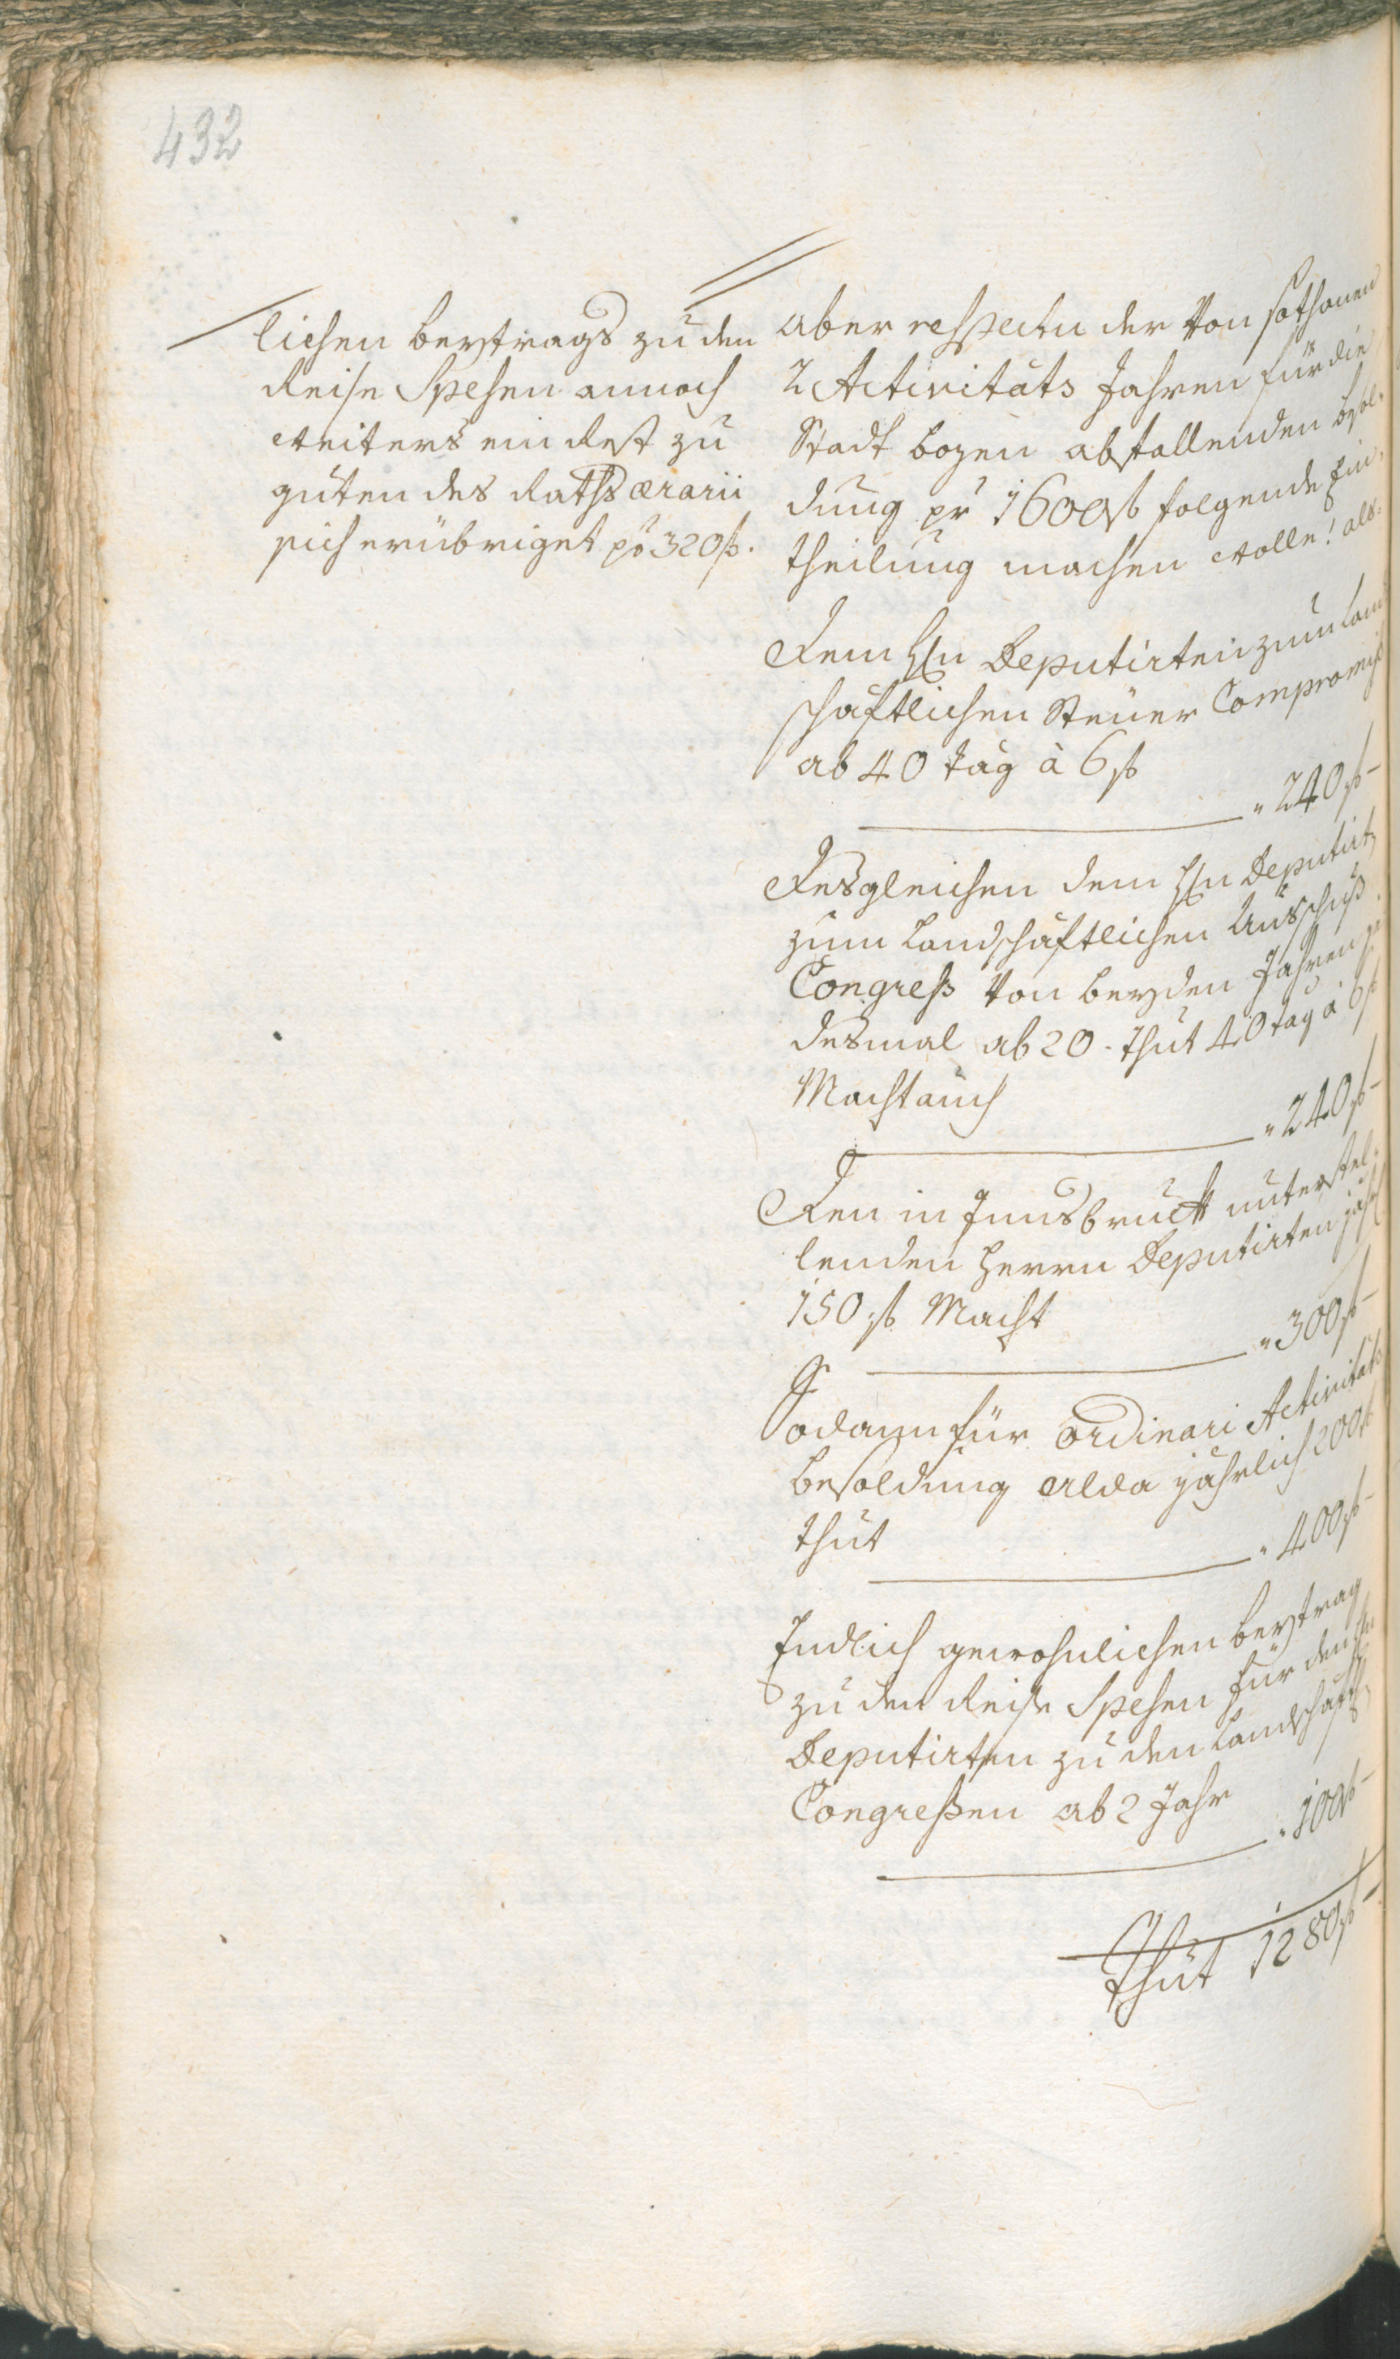 432
lichen beytrags zu den
Reise Spesen annoch
weiters ein Rest zu
guten des Raths ærarii
sich erübriget pr 320 f.
aber respectu der von sothanen
2 Activitäts Jahren für die
Stadt bozen abfallenden bsol-
dung pr 1600 f folgende Ein-
theilung machen wolle! als:
Dem Hrn Deputirten zum land
schäftlichen Steuer Compromiß
ab 40 tag à 6 f
" 240 f -
Desgleichen dem Hrn Deputirt
zum landschäftlichen Ausschuß
Congreß von beyden Jahren je
desmal ab 20. thut 40 tag à 6 f
Macht auch
" 240 f -
Den in Innsbruck unterstel-
lenden Herrn Deputirten jährl
150 f Macht
" 300 f -
Sodann für ordinari Activitäts
besoldung alda jährlich 200 f
thut
" 400 f -
Endlich gewohnlichen beytrag
zu den Reise Spesen für den Hrn
Deputirten zu den Landschäftl
Congreßen ab 2 Jahr
" 100 f -
Thut 1280 f -